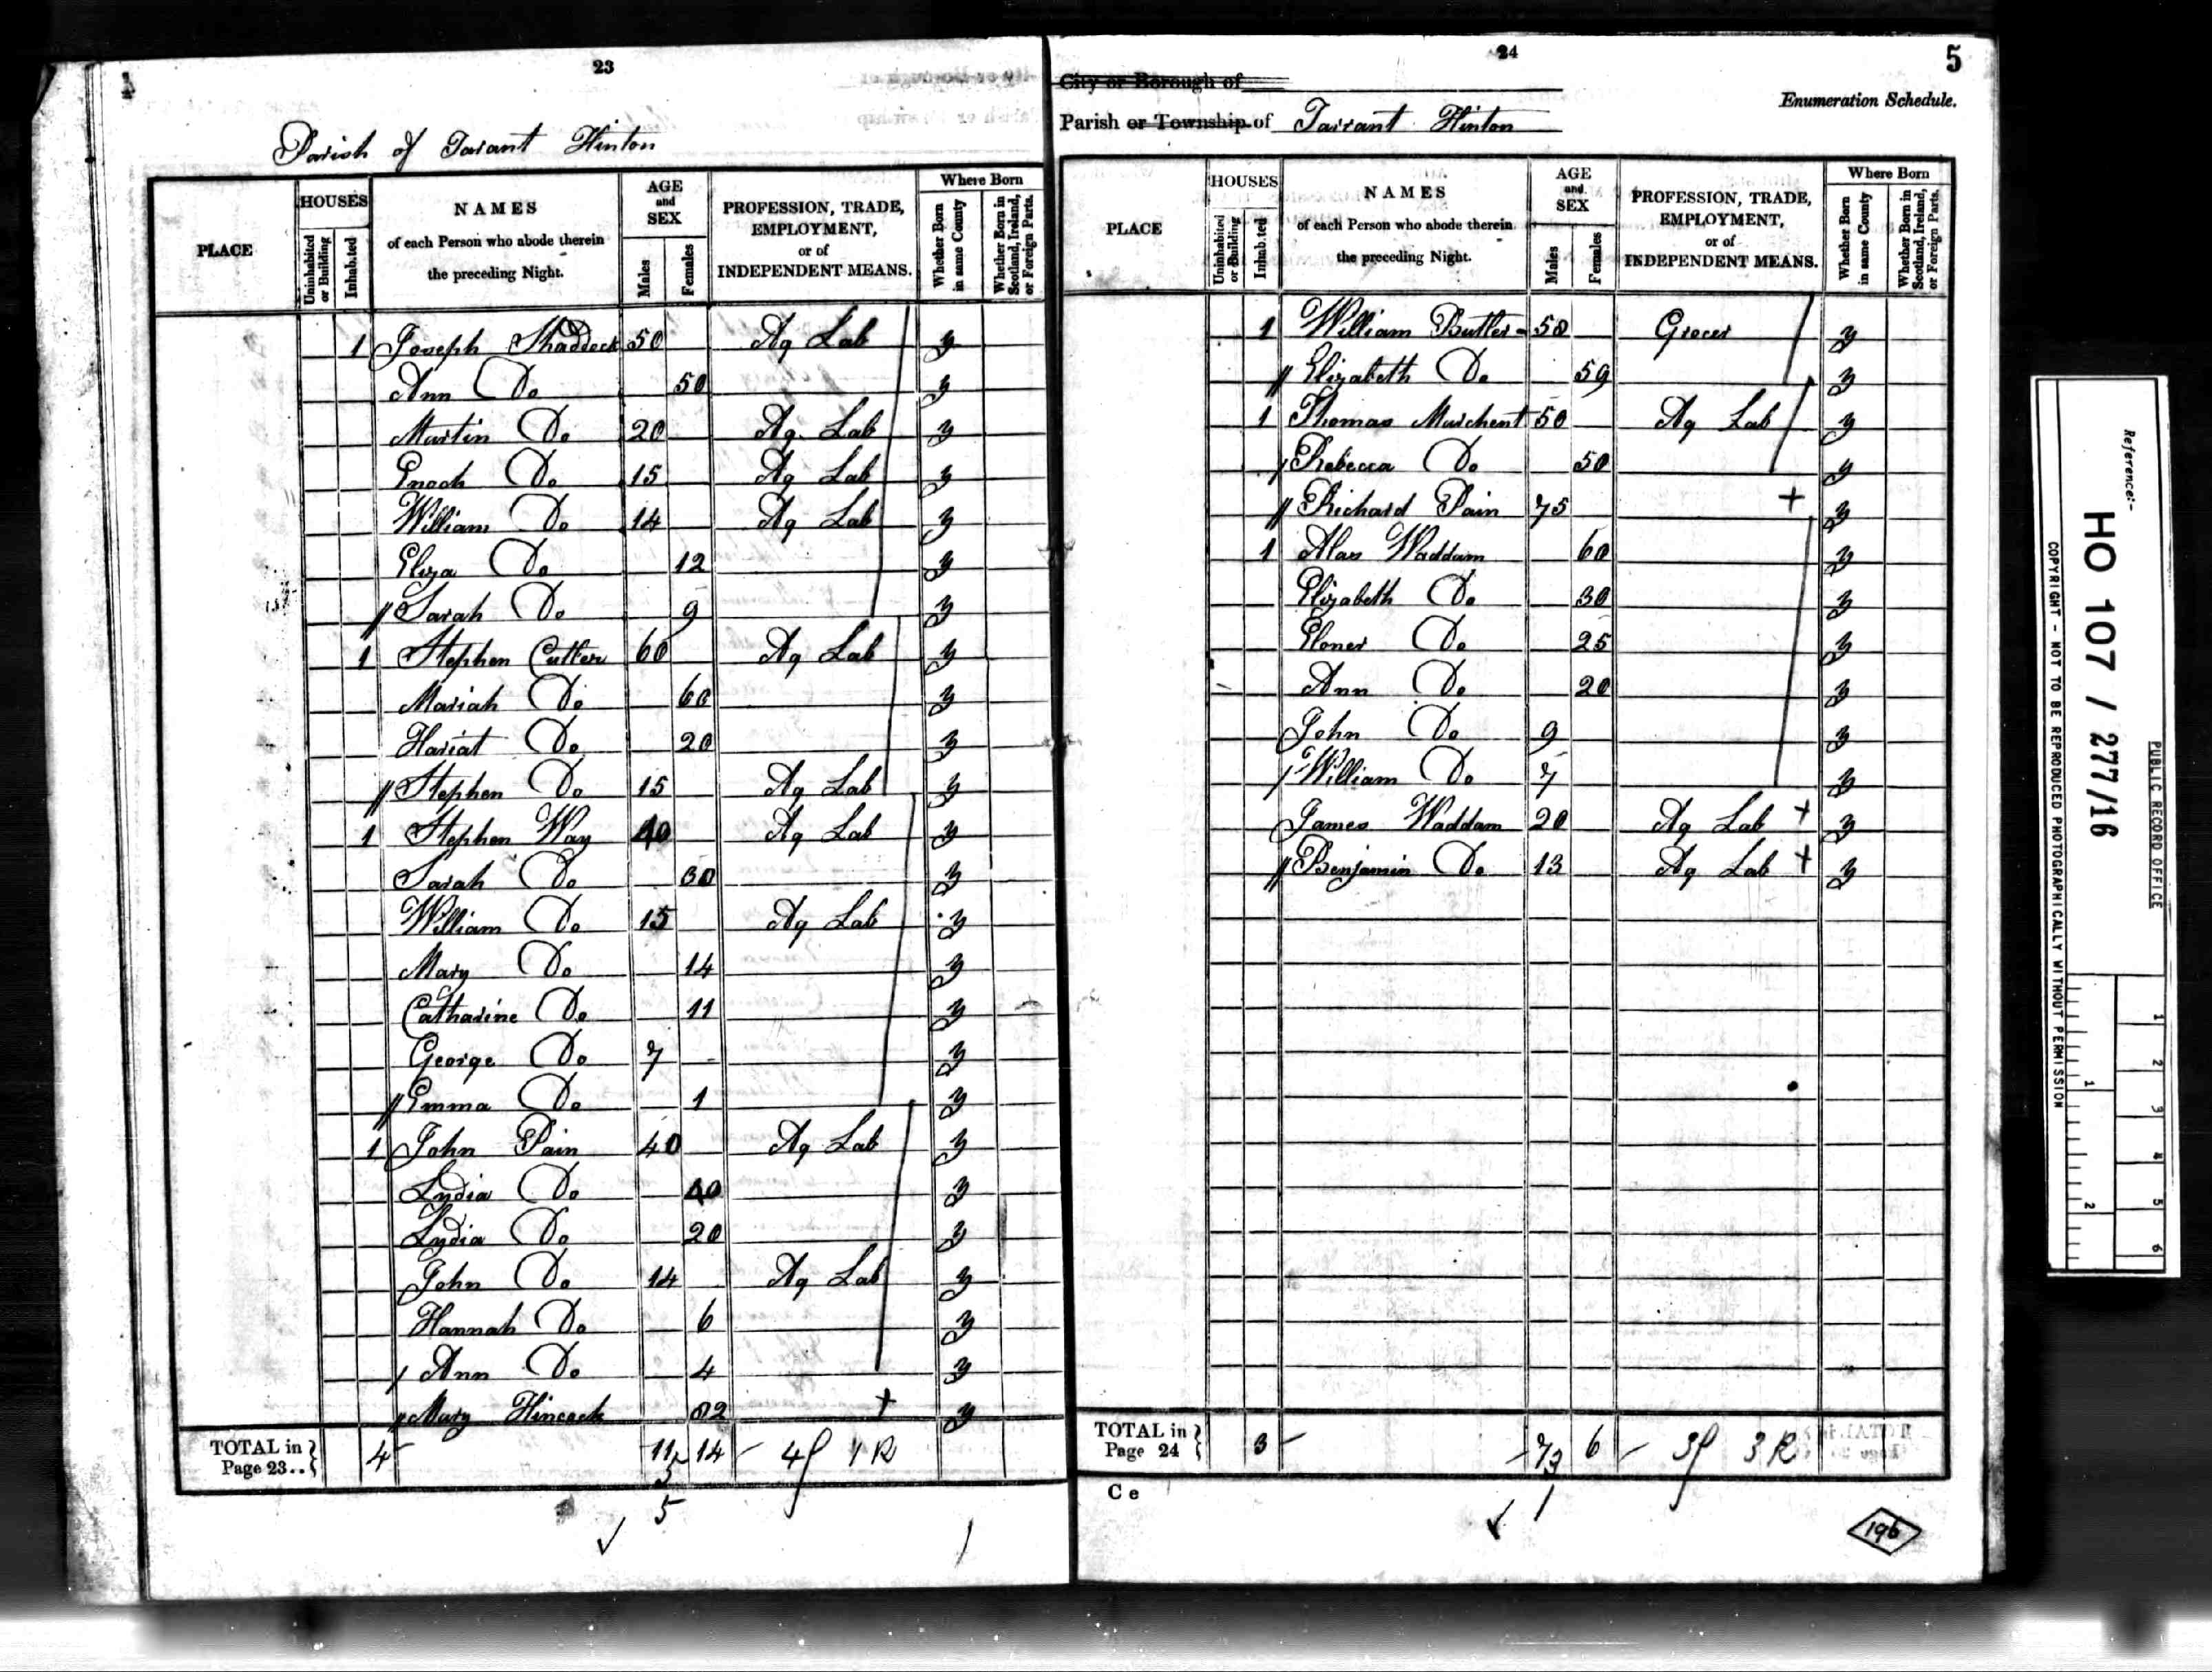 23
Parish of Tarant Hinton
PLACE
HOUSES
Uninhabited or Building
Inhabited
NAMES
of each Person who abode therein
the preceding Night.
AGE
and
SEX
Males
Females
PROFESSION, TRADE,
EMPLOYMENT,
or of
INDEPENDENT MEANS.
Where Born
Whether Born in same County
Whether Born in Scotland, Ireland, or Foreign Parts.
1 Joseph Shaddock 50 Ag Lab y
Ann Do 50 y
Martin Do 20 Ag Lab y
Enoch Do 15 Ag Lab y
William Do 14 Ag Lab y
Eliza Do 12 y
// Sarah Do 9 y
1 Stephen Cutler 60 Ag Lab y
Mariah Do 60 y
Hariat Do 20 y
// Stephen Do 15 Ag Lab y
1 Stephen Way 40 Ag Lab y
Sarah Do 30 y
William Do 15 Ag Lab y
Mary Do 14 y
Catharine Do 11 y
George Do 7 y
// Emma Do 1 y
1 John Pain 40 Ag Lab y
Lydia Do 40 y
Lydia Do 20 y
John Do 14 Ag Lab y
Hannah Do 6 y
/ Ann Do 4 y
// Mary Hincock 82 + y
TOTAL in Page 23.. 4 11 14
5
24
5
City or Borough of
Enumeration Schedule.
Parish or Township of Tarrant Hinton
PLACE
HOUSES
Uninhabited or Building
Inhabited
NAMES
of each Person who abode therein
the preceding Night.
AGE
and
SEX
Males
Females
PROFESSION, TRADE,
EMPLOYMENT,
or of
INDEPENDENT MEANS.
Where Born
Whether Born in same County
Whether Born in Scotland, Ireland, or Foreign Parts.
1 William Butler 50 Grocer y
// Elizabeth Do 59 y
1 Thomas Marchent 50 Ag Lab y
/ Rebecca Do 50 y
// Richard Pain 75 + y
1 Waddam 60 y
Elizabeth Do 30 y
Eloner Do 25 y
Ann Do 20 y
John Do 9 y
/ William Do 7 y
James Waddam 20 Ag Lab + y
// Benjamin Do 13 Ag Lab + y
TOTAL in Page 24 3 7 6
C e
196
Reference:-
HO 107 / 277/16
PUBLIC RECORD OFFICE
COPYRIGHT - NOT TO BE REPRODUCED PHOTOGRAPHICALLY WITHOUT PERMISSION
1 2 3 4 5 6
1 2